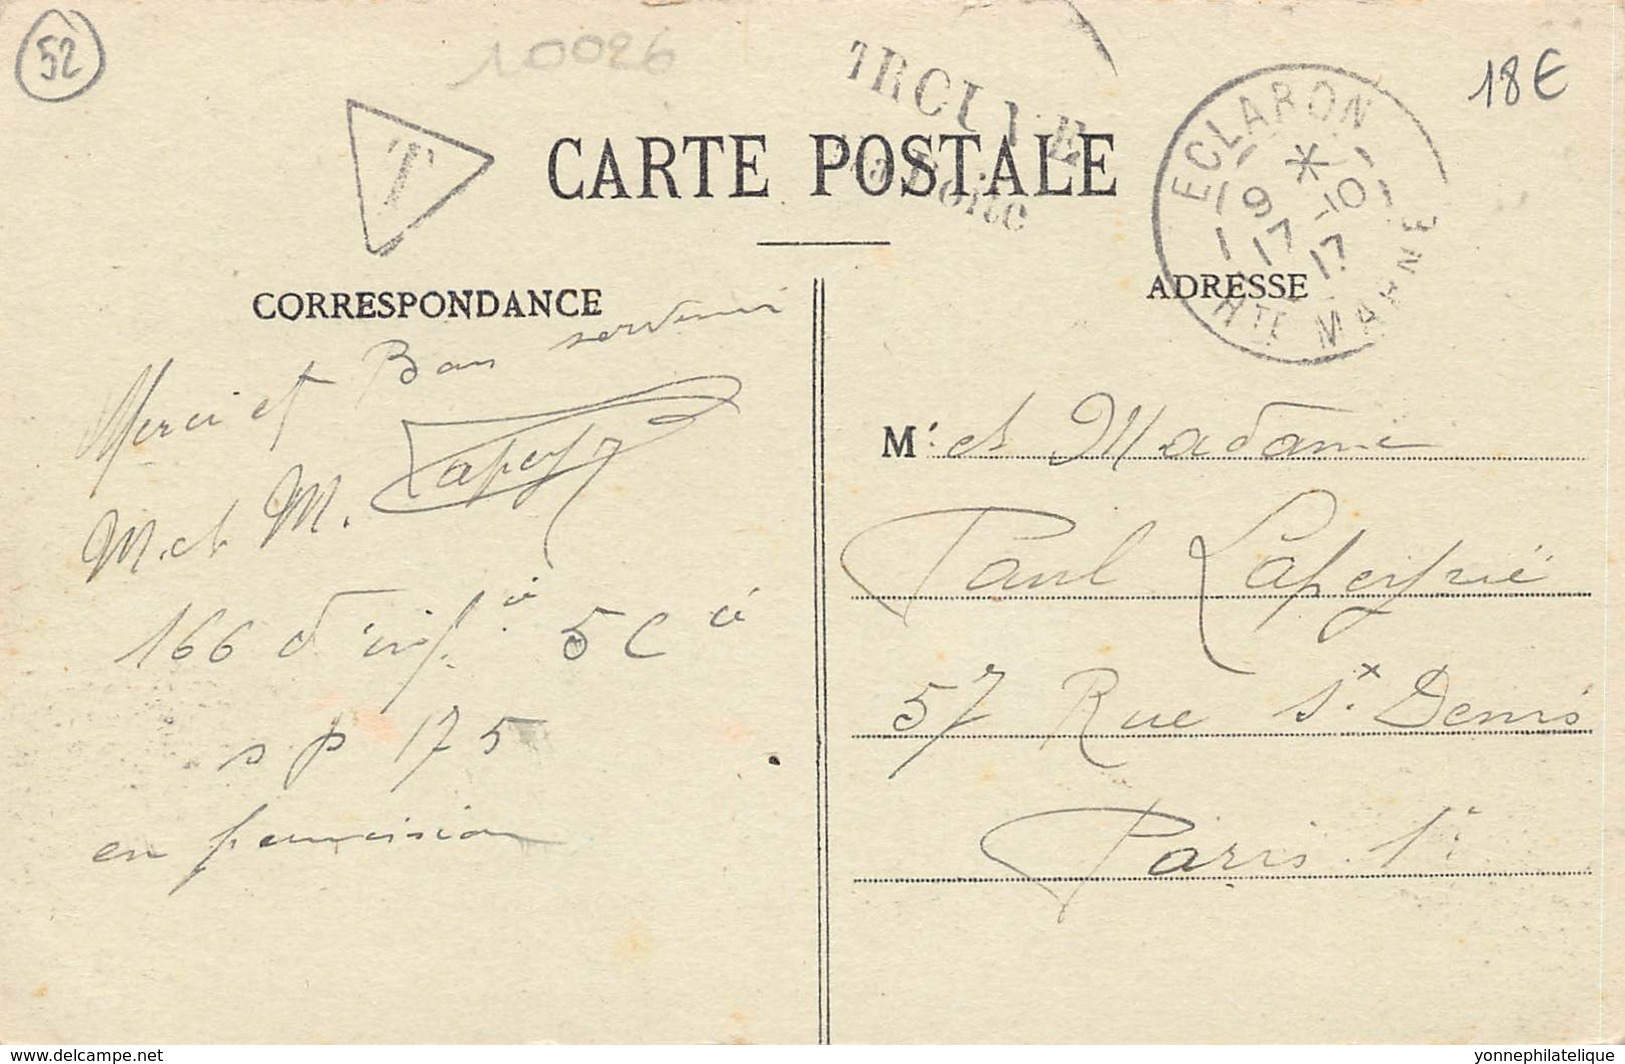 52
10026
T
TROUVE
à la Boîte
18€
CARTE POSTALE
ECLARON
9 * -10
17 17
HTE MARNE
CORRESPONDANCE
ADRESSE
Merci et Bon souvenir
M. et M. Lapey
166 d'inf.ie 5 Cie
s p 175
en permission
Mr. et Madame
Paul Lapeyrie
57 Rue St. Denis
Paris 1er
www.delcampe.net
yonnephilatelique